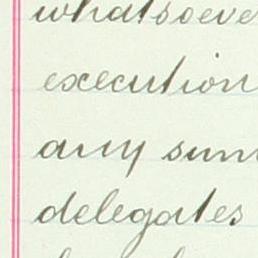 whatsoeve
execution
any sum
delegates